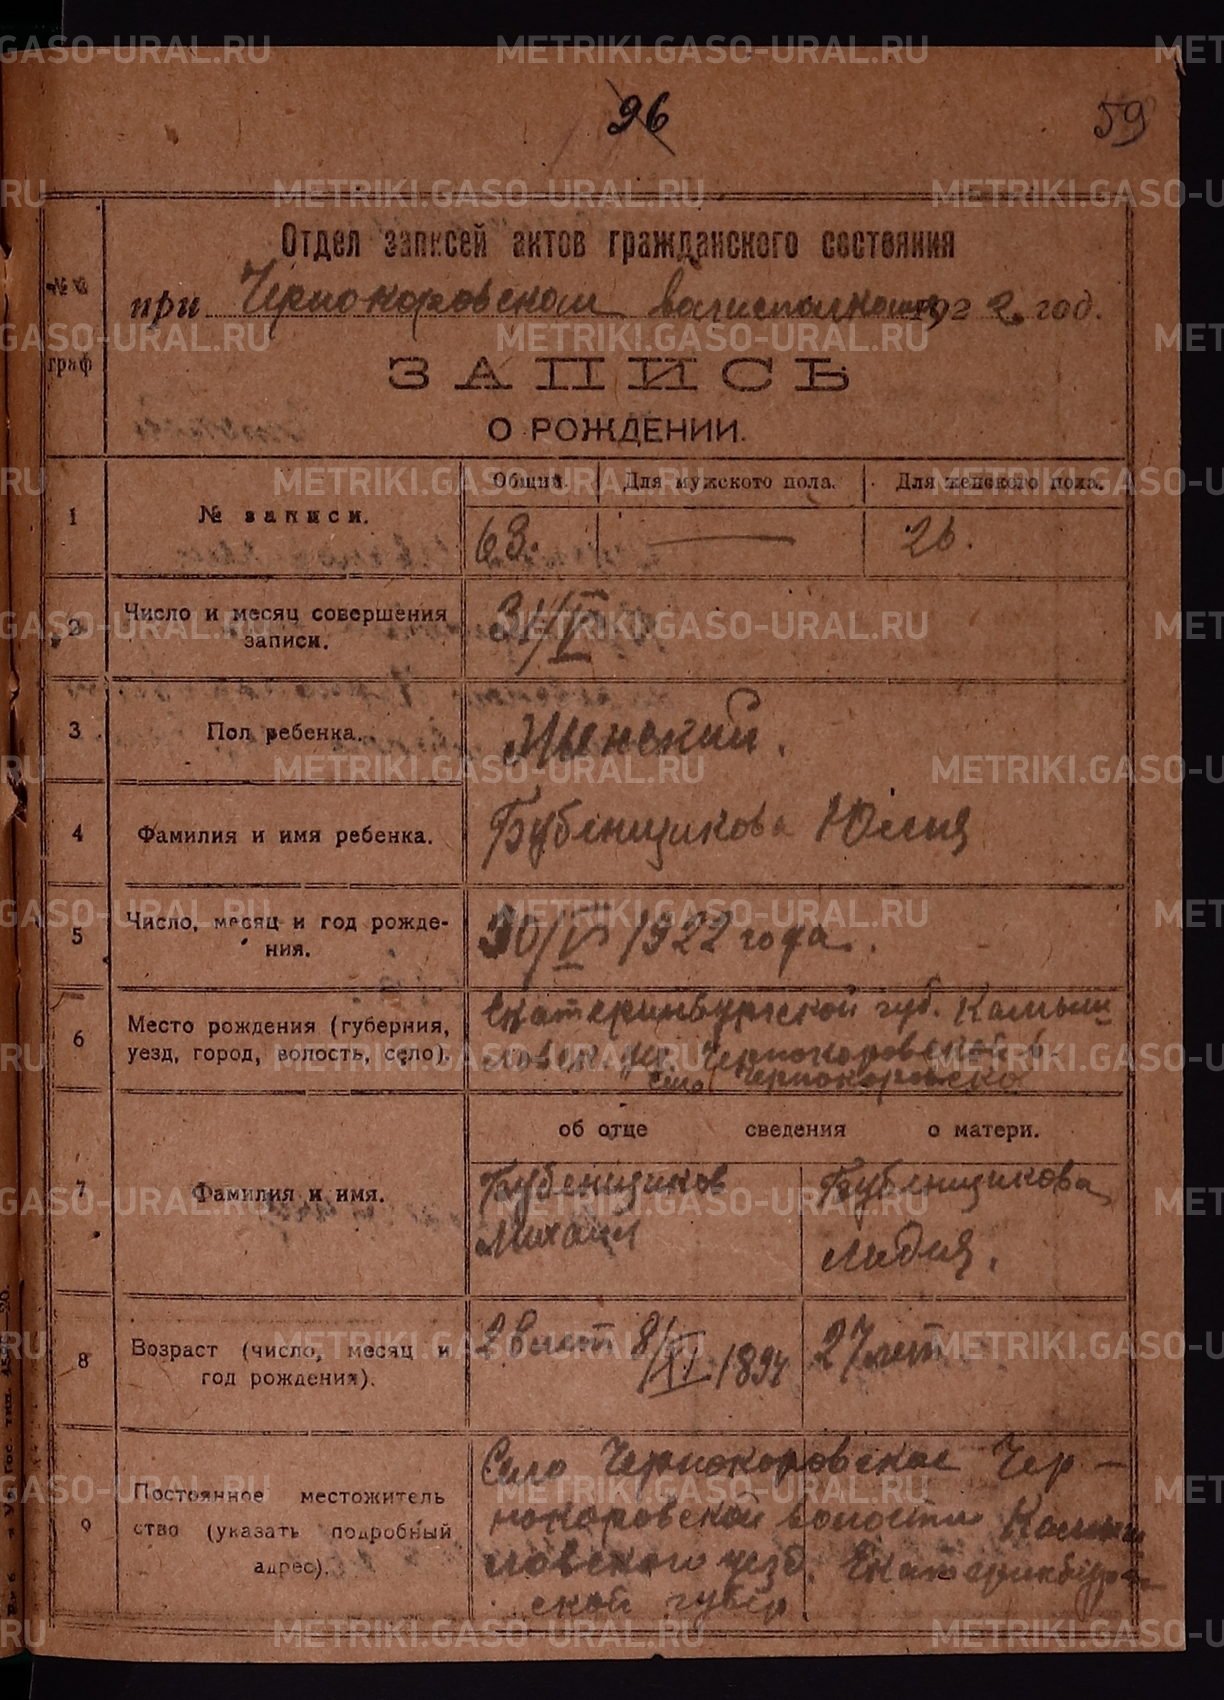 96
59
Отдел записей актов гражданского состояния
№№ граф
при Чернокоровском волисполкоме 1922 год.
ЗАПИСЬ
О РОЖДЕНИИ.
Общий. Для мужского пола. Для женского пола.
1 № записи. 63. — 26.
2 Число и месяц совершения
записи. 31/V
3 Пол ребенка. Женский.
4 Фамилия и имя ребенка. Бубенщикова Юлия
5 Число, месяц и год рожде-
ния. 30/V 1922 года.
6 Место рождения (губерния,
уезд, город, волость, село).
Екатеринбургской губ. Камыш-
ловск. уез. Чернокоровской в.
село Чернокоровско
об отце сведения о матери.
7 Фамилия и имя.
Бубенщиков
Михаил
Бубенщикова
Лидия.
8 Возраст (число, месяц и
год рождения).
28 лет 8/XI 1894
27 лет
9 Постоянное местожитель
ство (указать подробный
адрес).
Село Чернокоровское Чер-
нокоровской волости Камыш
ловского уезд. Екатеринбург
ской губер.
METRIKI.GASO-URAL.RU